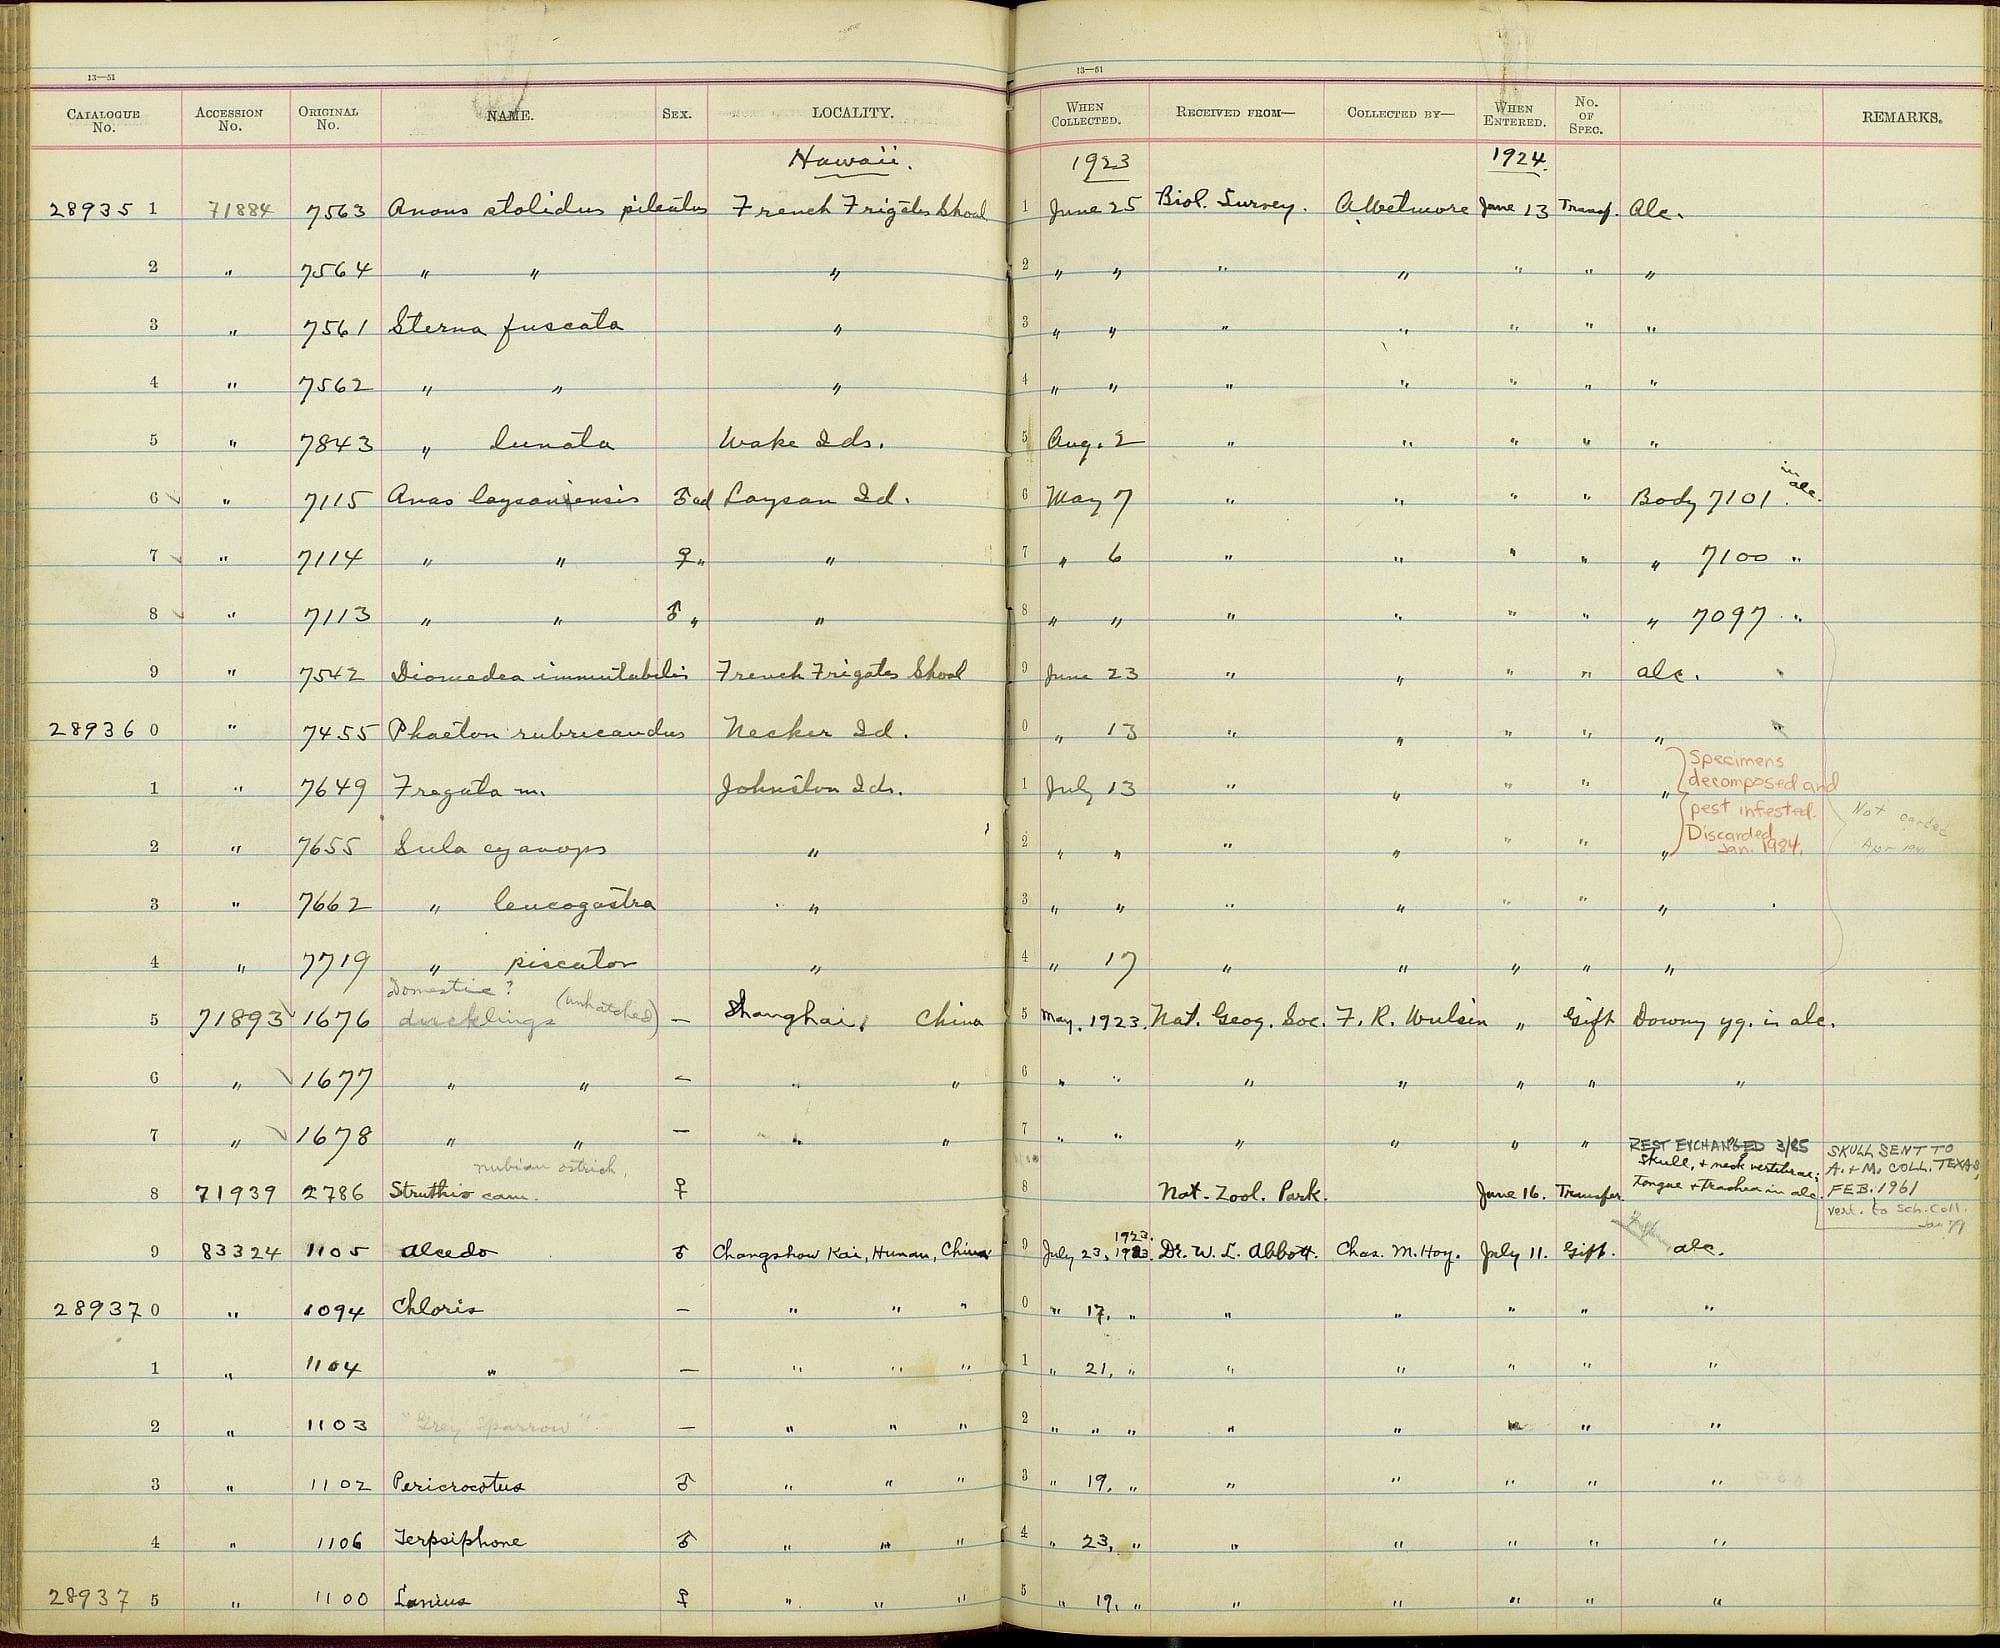 13—51
CATALOGUE No. ACCESSION No. ORIGINAL No. NAME. SEX. LOCALITY.
Hawaii.
28935 1 71884 7563 Anous stolidus pileatus French Frigates Shoal
2 " 7564 " " "
3 " 7561 Sterna fuscata "
4 " 7562 " " "
5 " 7843 " lunata Wake Ids.
6 " 7115 Anas laysaniensis ♂ ad Laysan Id.
7 " 7114 " " ♀ " "
8 " 7113 " " ♂ " "
9 " 7542 Diomedea immutabilis French Frigates Shoal
28936 0 " 7455 Phaeton rubricaudus Necker Id.
1 " 7649 Fregata m. Johnston Ids.
2 " 7655 Sula cyanops "
3 " 7662 " leucogastra "
4 " 7719 " piscator "
Domestic ?
5 71893 1676 ducklings (unhatched) — Shanghai, China
6 " 1677 " " — " "
7 " 1678 " " — " "
nubian ostrich,
8 71939 2786 Struthio cam. ♀
9 83324 1105 Alcedo ♂ Changshow Kai, Hunan, China
28937 0 " 1094 Chloris — " " "
1 " 1104 " — " " "
2 " 1103 "Grey Sparrow" — " " "
3 " 1102 Pericrocotus ♂ " " "
4 " 1106 Terpsiphone ♂ " " "
28937 5 " 1100 Lanius ♀ " " "
13—51
WHEN COLLECTED. RECEIVED FROM— COLLECTED BY— WHEN ENTERED. No. OF SPEC. REMARKS.
1923 1924.
1 June 25 Biol. Survey. A Wetmore June 13 Transf. Alc.
2 " " " " " " "
3 " " " " " " "
4 " " " " " " "
5 Aug. 2 " " " " "
6 May 7 " " " " Body 7101 in alc.
7 " 6 " " " " " 7100 "
8 " " " " " " " 7097 "
9 June 23 " " " " alc.
0 " 13 " " " " "
1 July 13 " " " " "
Specimens
decomposed and
pest infested.
Discarded
Jan. 1984.
Not carded
2 " " " " " " "
3 " " " " " " "
4 " 17 " " " " "
5 May. 1923. Nat. Geog. Soc. F. R. Wulsin " Gift Downy yg. in alc.
6 " " " " " " "
7 " " " " " "
REST EXCHANGED 3/85
Skull, + neck vertebrae;
tongue + trachea in alc.
SKULL SENT TO
A. + M. COLL. TEXAS,
FEB. 1961
vert. to Sch. Coll.
8 Nat. Zool. Park. June 16. Transfer.
1923.
9 July 23, 1923. Dr. W. L. Abbott. Chas. M. Hoy. July 11. Gift. alc.
0 " 17, " " " " " "
1 " 21, " " " " " "
2 " " " " " " " "
3 " 19, " " " " " "
4 " 23, " " " " " "
5 " 19, " " " " " "